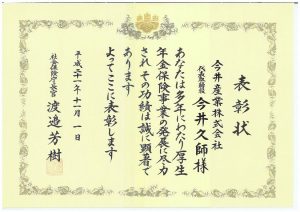 表彰状
今井産業株式会社
代表取締役 今井久師様
あなたは多年にわたり厚生
年金保険事業の発展に尽力
されその功績は誠に顕著で
あります
よってここに表彰します
平成二十一年十一月一日
社会保険庁長官 渡邉芳樹